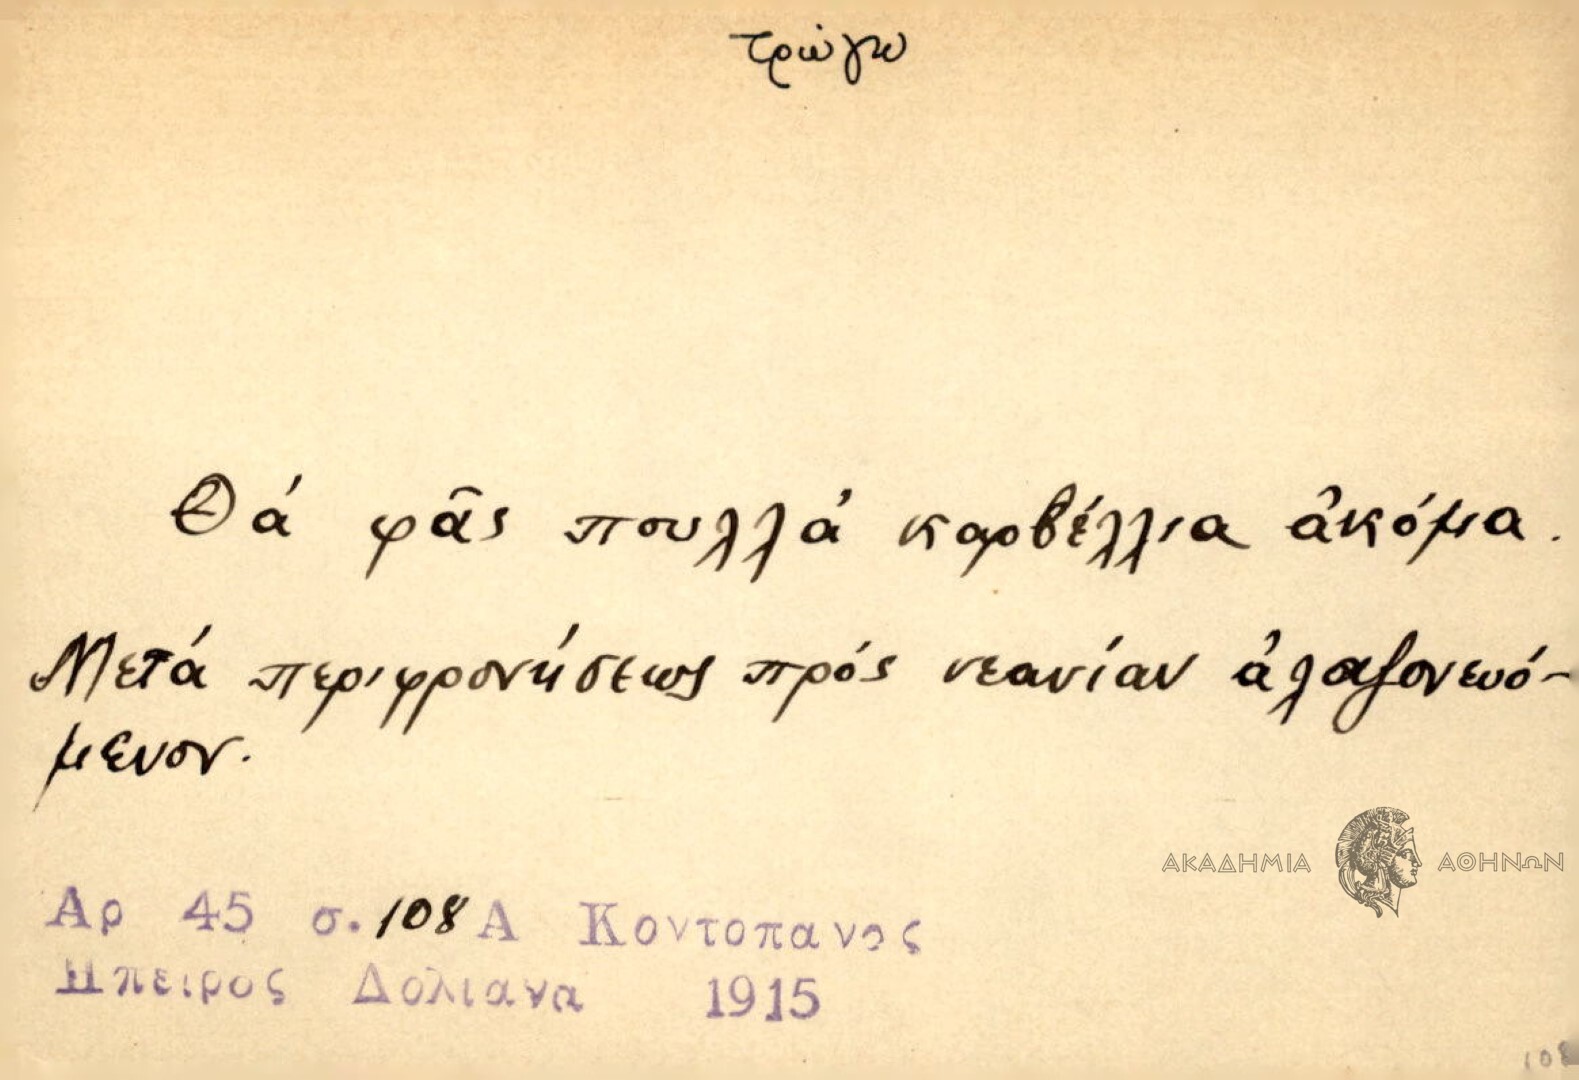 τρώγω
Θά φᾶς πουλλά καρβέλλια ἀκόμα.
Μετά περιφρονήσεως πρός νεανίαν ἀλαζονευό-
μενον.
ΑΚΑΔΗΜΙΑ ΑΘΗΝΩΝ
Αρ 45 σ. 108 Α Κοντοπανος
Ηπειρος Δολιανα 1915
108